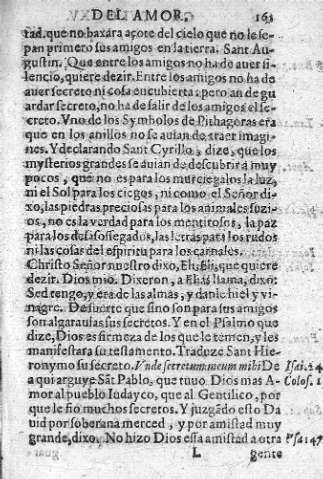 DEL AMOR. 161
rad, que no baxara açote del cielo que no le sepan
primero sus amigos en la tierra. Sant Augustin.
Que entre los amigos no ha de auer silencio,
quiere dezir. Entre los amigos no ha de
auer secreto ni cosa encubierta: pero an de guardar
secreto, no ha de salir de los amigos el secreto.
Vno de los Symbolos de Pithagoras era
que en los anillos no se auian de traer imagines.
Y declarando Sant Cyrillo, dize, que los
mysterios grandes se auian de descubrir a muy
pocos, que no es para los murciegalos la luz,
ni el Sol para los ciegos, ni como el Señor dixo,
las piedras preciosas para los animales suzios,
no es la verdad para los mentirosos, la paz
para los desasossegados, las letras para los rudos
ni las cosas del espiritu para los carnales.
Christo Señor nuestro dixo, Eli, Eli, que quiere
dezir. Dios mio. Dixeron, a Elias llama, dixo:
Sed tengo, y era de las almas, y danle hiel y vinagre.
De suerte que sino son para sus amigos
son algarauias sus secretos. Y en el Psalmo que
dize, Dios es firmeza de los que le temen, y les
manifestara su testamento. Traduze Sant Hieronymo
su secreto. Vnde secretum meum mihi De Isai. 24
a qui arguye Sāt Pablo, que tuuo Dios mas A- Colos. 1
mor al pueblo Iudayco, que al Gentilico, por
que le fio muchos secretos. Y juzgādo esto Dauid
por soberana merced, y por amistad muy
grande, dixo. No hizo Dios essa amistad a otra Psa 147
L gente